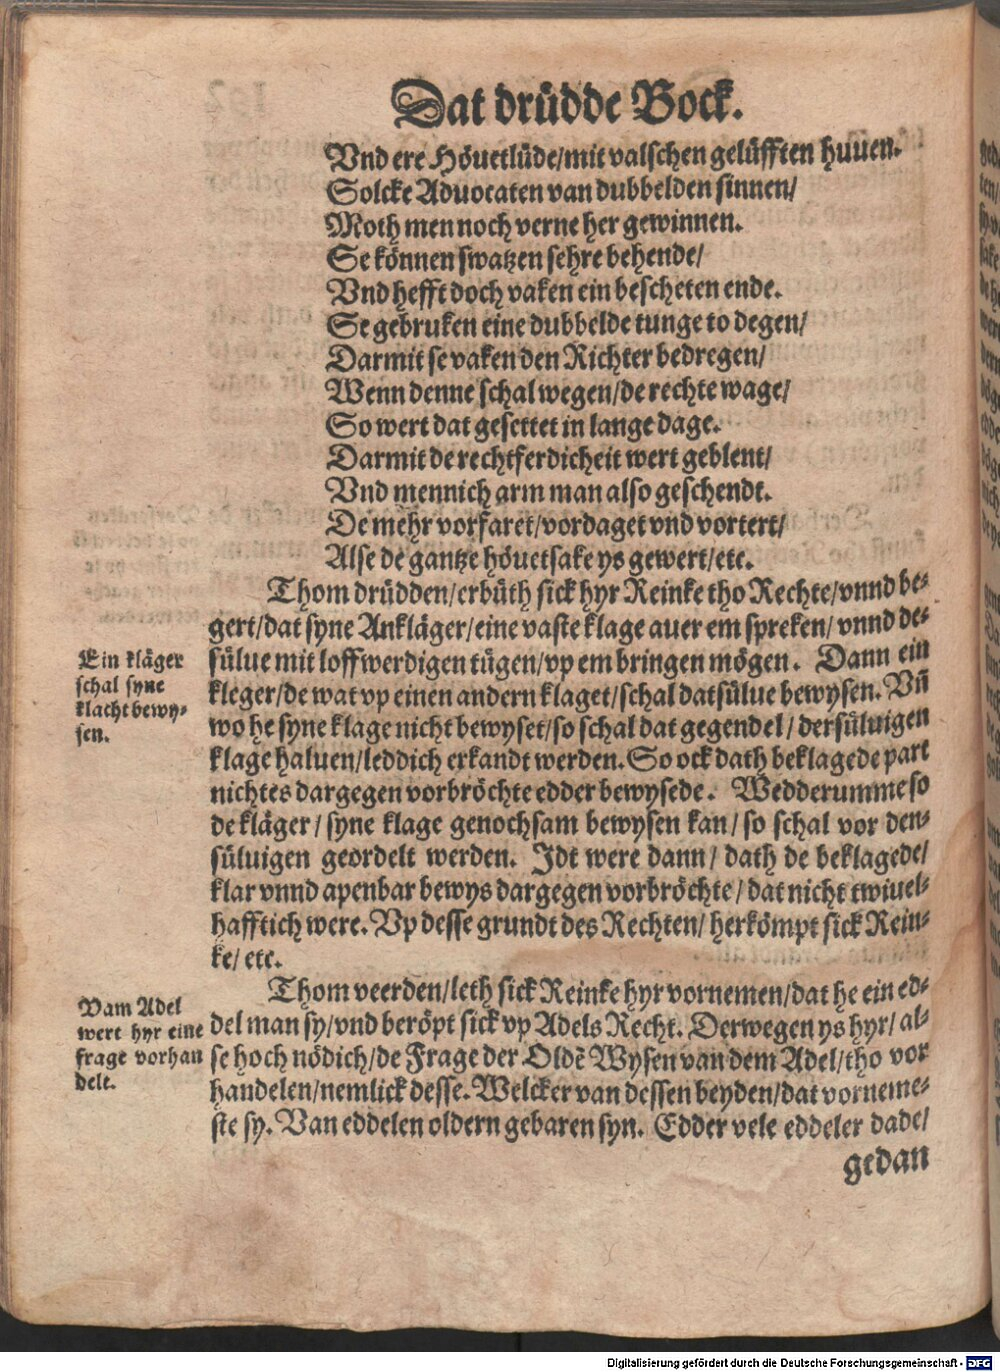 Dat drüdde Bock.
Vnd ere Höuetlüde/mit valschen gelüfften huuen.
Solcke Aduocaten van dubbelden sinnen/
Moth men noch verne her gewinnen.
Se können swatzen sehre behende/
Vnd hefft doch vaken ein bescheten ende.
Se gebruken eine dubbelde tunge to degen/
Darmit se vaken den Richter bedregen/
Wenn denne schal wegen/de rechte wage/
So wert dat gesettet in lange dage.
Darmit de rechtferdicheit wert geblent/
Vnd mennich arm man also geschendt.
De mehr vorfaret/vordaget vnd vortert/
Alse de gantze höuetsake ys gewert/etc.
Thom drüdden/erbüth sick hyr Reinke tho Rechte/vnnd be-
gert/dat syne Ankläger/eine vaste klage auer em spreken/ vnnd de-
Ein kläger
schal syne
klacht bewy-
sen.
sülue mit loffwerdigen tügen/vp em bringen mögen. Dann ein
kleger/de wat vp einen andern klaget/schal datsülue bewysen. Vñ
wo he syne klage nicht bewyset/so schal dat gegendel/ dersüluigen
klage haluen/leddich erkandt werden. So ock dath beklagede part
nichtes dargegen vorbröchte edder bewysede. Wedderumme so
de kläger/ syne klage genochsam bewysen kan/ so schal vor den-
süluigen geordelt werden. Idt were dann/ dath de beklagede/
klar vnnd apenbar bewys dargegen vorbröchte/ dat nicht twiuel-
hafftich were. Vp desse grundt des Rechten/ herkömpt sick Rein-
ke/ etc.
Thom veerden/leth sick Reinke hyr vornemen/dat he ein ed-
Vam Adel
wert hyr eine
frage vorhan
delt.
del man sy/vnd beröpt sick vp Adels Recht. Derwegen ys hyr/ al-
se hoch nödich/de Frage der Oldē Wysen van dem Adel/tho vor
handelen/nemlick desse. Welcker van dessen beyden/dat vorneme-
ste sy. Van eddelen oldern gebaren syn. Edder vele eddeler dade/
gedan
Digitalisierung gefördert durch die Deutsche Forschungsgemeinschaft - DFG